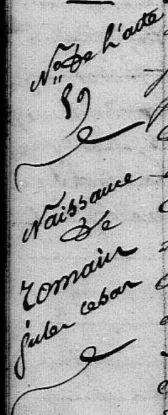 No de l'acte
59
Naissance
de
romain
jules cesar